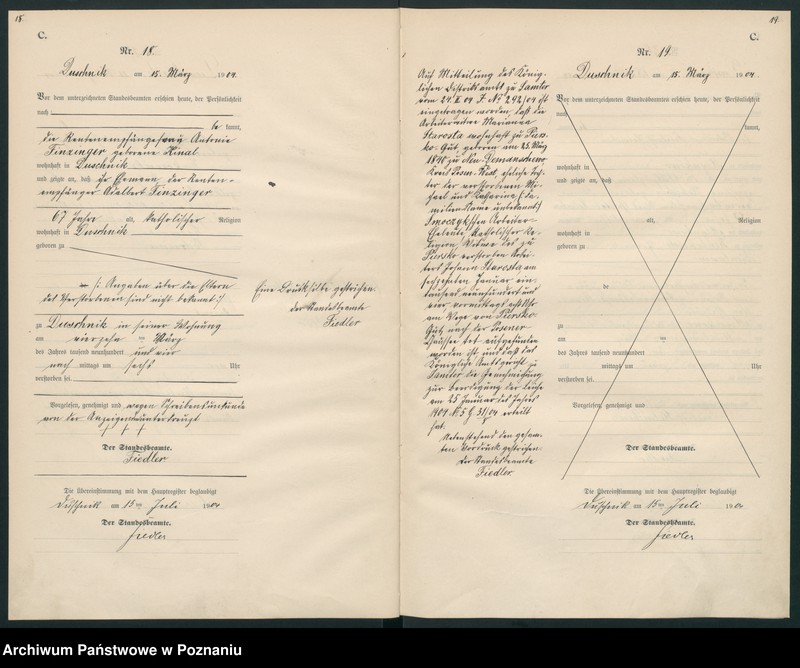 18.
C.
Nr. 18
Duschnik am 15. März 1904.
Vor dem unterzeichneten Standesbeamten erschien heute, der Persönlichkeit
nach
be kannt,
die Rentenempfängerfrau Antonie
Finzinger geborene
wohnhaft in Duschnik
und zeigte an, daß ihr Ehemann, der Renten-
empfänger Adalbert Finzinger
67 Jahre alt, katholischer Religion
wohnhaft in Duschnik
geboren zu
(: Angaben über die Eltern
des Verstorbenen sind nicht bekannt :)
zu Duschnik in seiner Wohnung
am vierzehnten März
des Jahres tausend neunhundert und vier
nach mittags um sechs Uhr
verstorben sei.
Vorgelesen, genehmigt und wegen Schreibensunkunde
von der Anzeigenden unterkreuzt
+ + +
Der Standesbeamte.
Fiedler
Die Übereinstimmung mit dem Hauptregister beglaubigt
Duschnik am 15ten Juli 1904
Der Standesbeamte.
Fiedler
Eine Drucksilbe gestrichen.
der Standesbeamte
Fiedler
19.
C.
Nr. 19
Duschnik am 15. März 1904.
Vor dem unterzeichneten Standesbeamten erschien heute, der Persönlichkeit
nach
kannt,
wohnhaft in
und zeigte an, daß
alt, Religion
wohnhaft in
geboren zu
de
zu
am ten
des Jahres tausend neunhundert
mittags um Uhr
verstorben sei.
Vorgelesen, genehmigt und
Der Standesbeamte.
Die Übereinstimmung mit dem Hauptregister beglaubigt
Duschnik am 15ten Juli 1904
Der Standesbeamte.
Fiedler
Auf Mitteilung des König-
lichen Distriktsamts zu Samter
vom 24. 04 J. No 292/04 ist
eingetragen worden, daß die
Arbeiterwitwe Marianna
Starosta wohnhaft zu Piers-
ko Gut, geboren am 25. März
1840 zu
Kreis eheliche Toch-
ter der verstorbenen Mi-
chael und Katharina (: Fa-
milienname unbekannt :)
Smoczyk'schen Arbeiter-
Eheleute, katholischer Re-
ligion, Witwe des zu
Piersko verstorbenen Arbei-
ters Johann Starosta am
sechzehnten Januar ein-
tausend neunhundert und
vier vormittags acht Uhr
am Wege von Piersko
Gut nach der
Chaussee tot aufgefunden
worden ist und daß das
Königliche Amtsgericht zu
Samter die Genehmigung
zur Beerdigung der Leiche
am 25 Januar des Jahres
1904 31/04 erteilt
hat.
Nebenstehend den gesam-
ten Vordruck gestrichen.
Der Standesbeamte
Fiedler
Archiwum Państwowe w Poznaniu